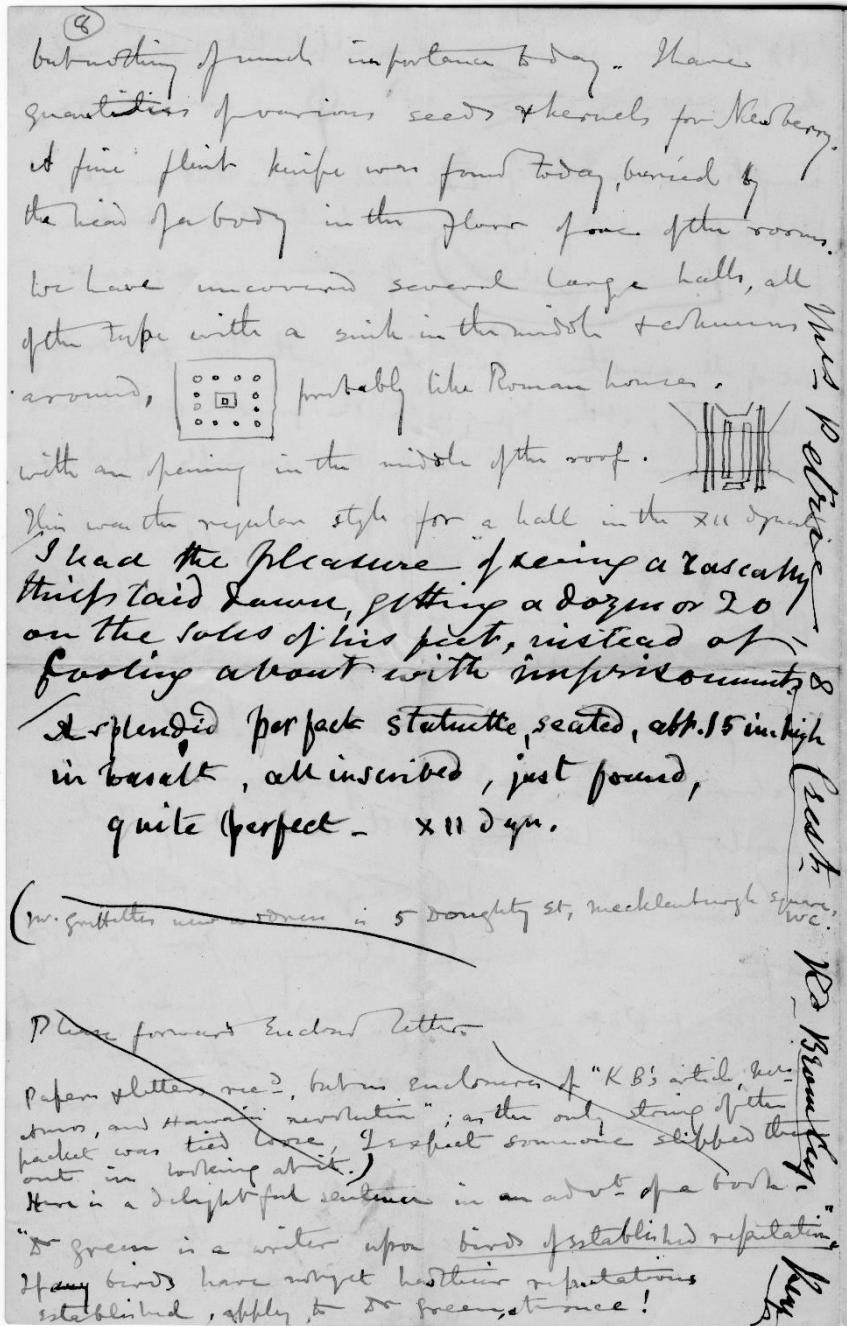 8
but nothing of much importance today. I have
quantities of various seeds & kernels for Newberry.
A fine flint knife was found today, buried by
the head of a body in the floor of one of the rooms.
We have uncovered several large halls, all
of the type with a sink in the middle & columns
around, probably like Roman houses.
with an opening in the middle of the roof.
This was the regular style for a hall in the XII dynasty
I had the pleasure of seeing a rascally
thief laid down, getting a dozen or 20
on the soles of his feet, instead of
fooling about with imprisonment.
A splendid perfect statuette, seated, abt. 15 in. high
in basalt, all inscribed, just found,
quite perfect - XII dyn.
(Mr. Griffith's new address is 5 Doughty St, Mecklenburgh Square,
WC.
Please forward Enclosed letter.
Papers & letters recd, but no enclosures of "KB's article,
and Hawaii revolution"; as the only string of the
packet was tied loose, I expect someone slipped them
out in looking at it.)
Here is a delightful sentence in an advt. of a book
"Dr Green is a writer upon birds of established reputation"
If any birds have not yet had their reputations
established, apply to Dr Green, at once!
Mrs Petrie - 8 Crest Rd Bromley.